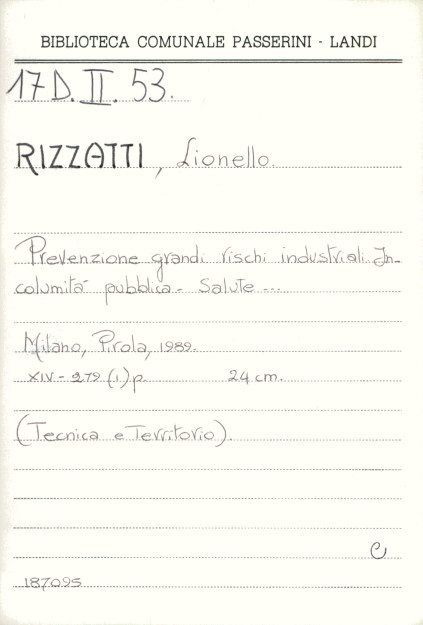 BIBLIOTECA COMUNALE PASSERINI - LANDI
17 D. II. 53.
RIZZATTI, Lionello.
Prevenzione grandi rischi industriali In-
columità pubblica - Salute ...
Milano, Pirola, 1989.
XIV - 279 (1) p. 24 cm.
(Tecnica e Territorio).
C
187095